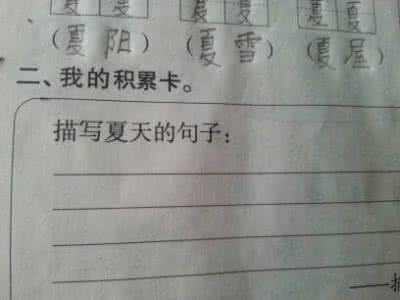 夏 夏 夏 夏 夏 夏
(夏阳) (夏雪) (夏屋)
二、我的积累卡。
描写夏天的句子: